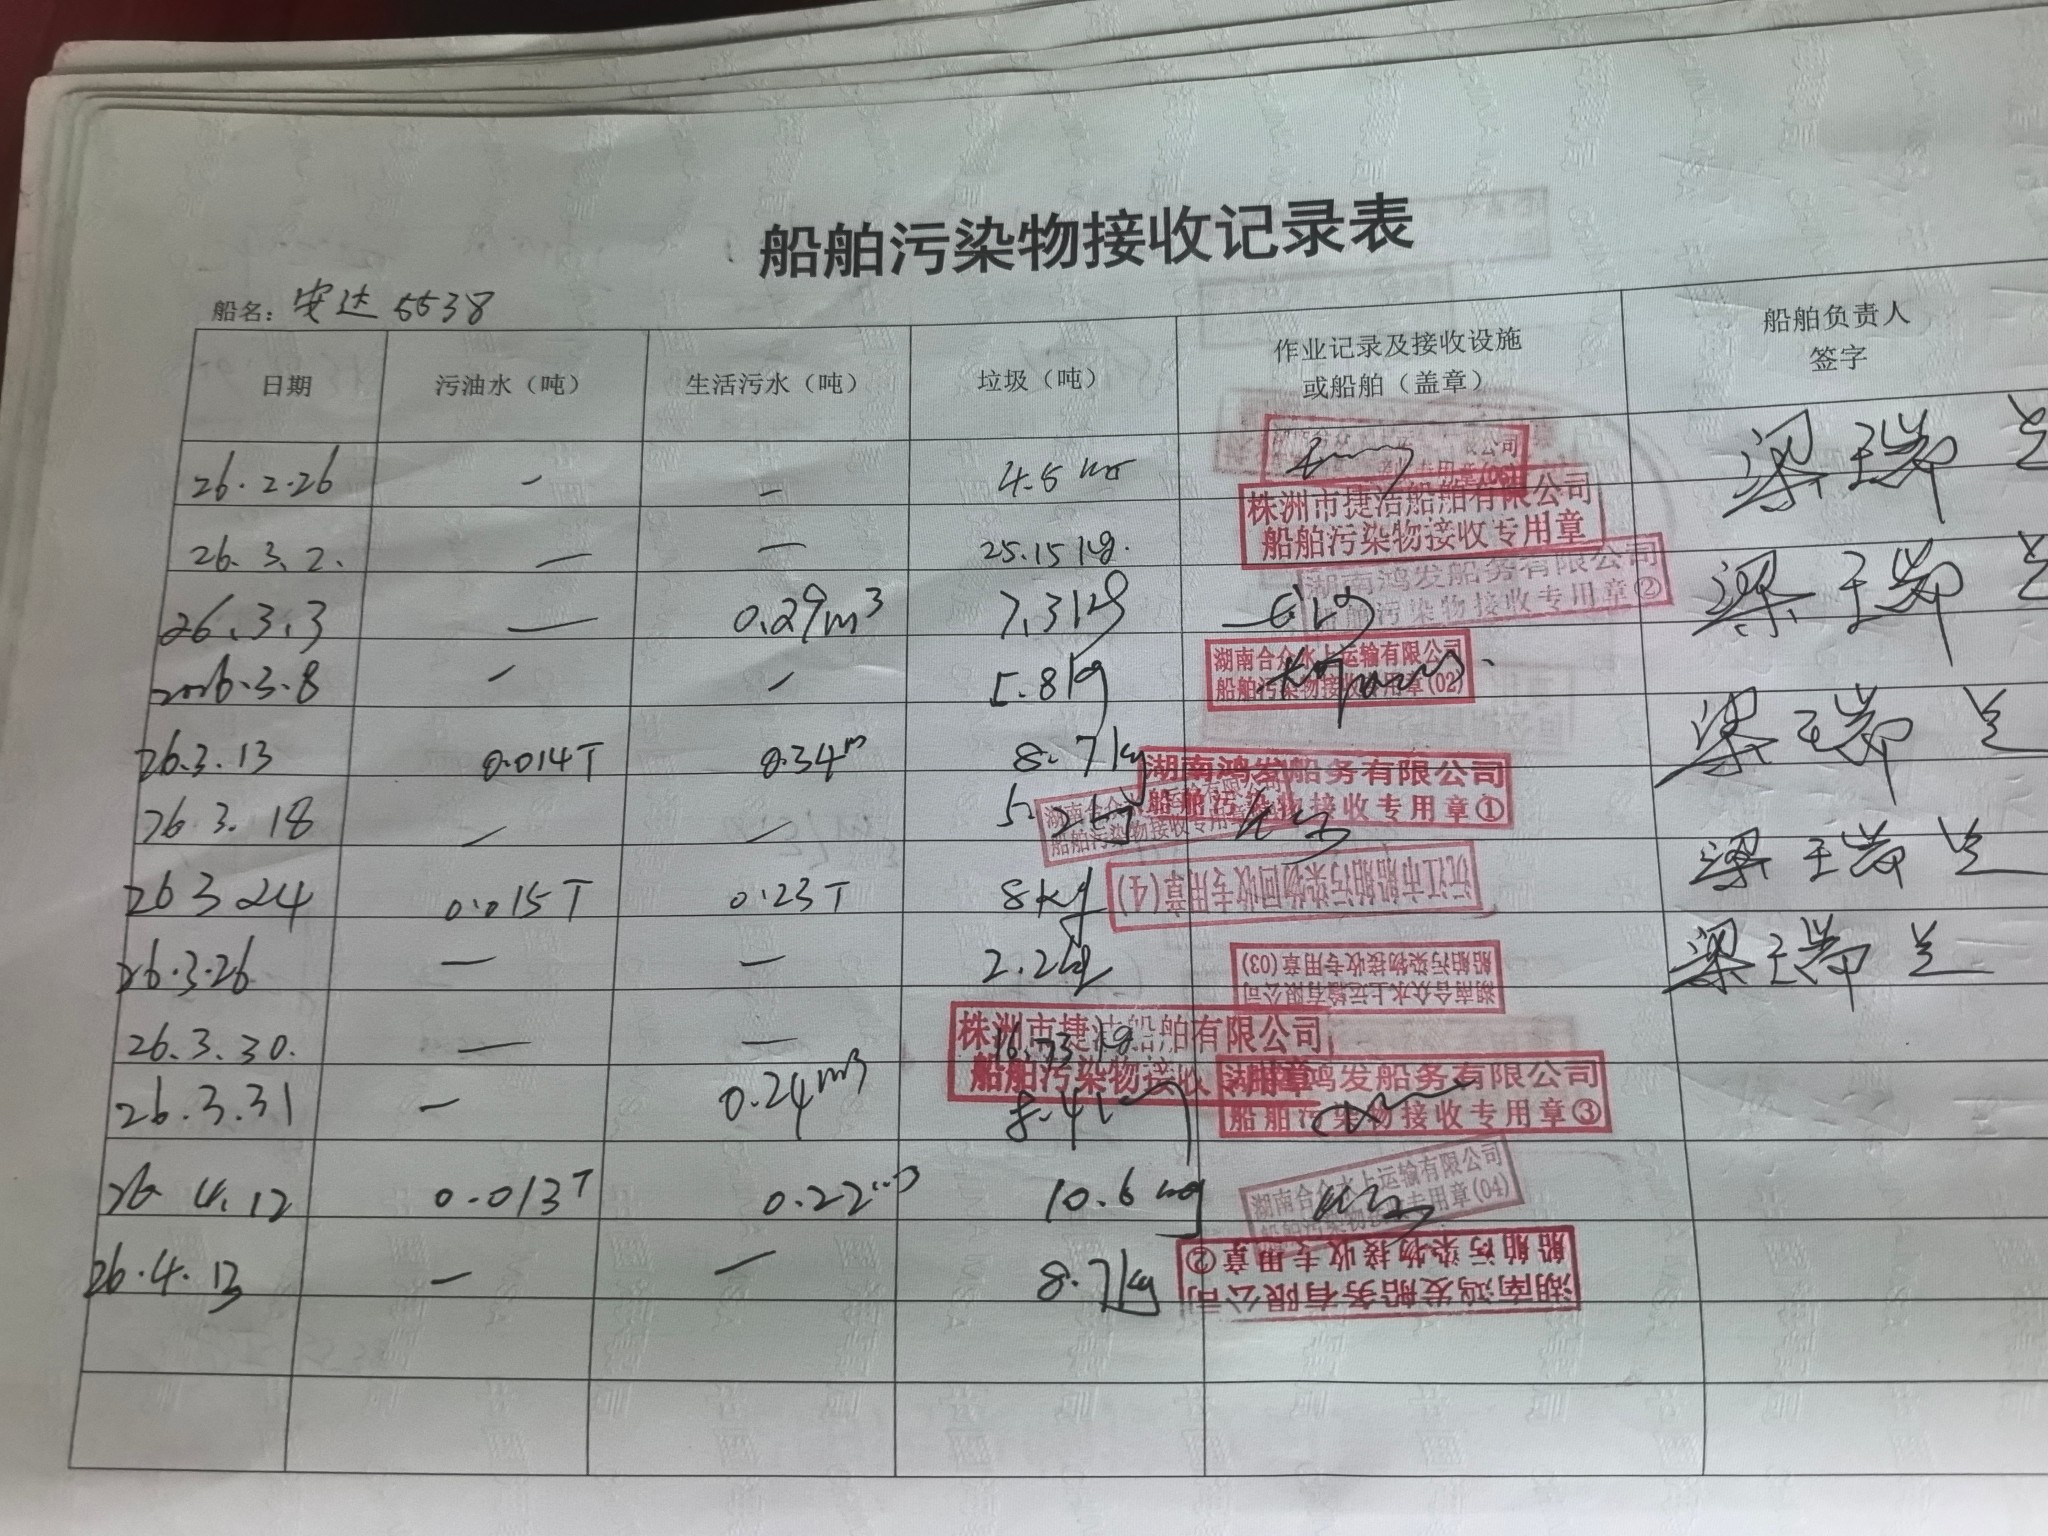 船舶污染物接收记录表
船名：安达5538
日期 污油水（吨） 生活污水（吨） 垃圾（吨） 作业记录及接收设施或船舶（盖章） 船舶负责人签字
26.2.26 — — 4.8 kg
株洲市捷洁船舶有限公司
船舶污染物接收专用章
26.3.2. — — 25.15 kg.
湖南鸿发船务有限公司
船舶污染物接收专用章②
26.3.3 — 0.29m³ 7.3kg
2026.3.8 — — 5.8kg
湖南合众水上运输有限公司
船舶污染物接收专用章(02)
26.3.13 0.014T 0.34m 8.7kg
湖南鸿发船务有限公司
船舶污染物接收专用章①
26.3.18 — —
湖南合众水上运输有限公司
船舶污染物接收专用章
26 3 24 0.015T 0.23T 8kg
沅江市船舶污染物回收专用章(4)
26.3.26 — — 2.2kg
湖南合众水上运输有限公司
船舶污染物接收专用章(03)
26.3.30. — — 16.73 kg
株洲市捷洁船舶有限公司
船舶污染物接收专用章
26.3.31 — 0.24m³
湖南鸿发船务有限公司
船舶污染物接收专用章③
26 4.12 0.013T 0.22m³ 10.6 kg
湖南合众水上运输有限公司
船舶污染物接收专用章(04)
26.4.13 — — 8.7kg
湖南鸿发船务有限公司
船舶污染物接收专用章②